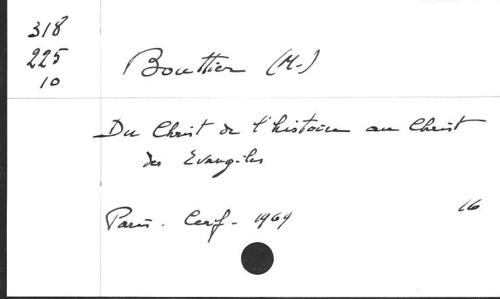 318
225
10
Bouttier (M.)
Du Christ de l'histoire au Christ
des Evangiles
Paris. Cerf - 1969
16